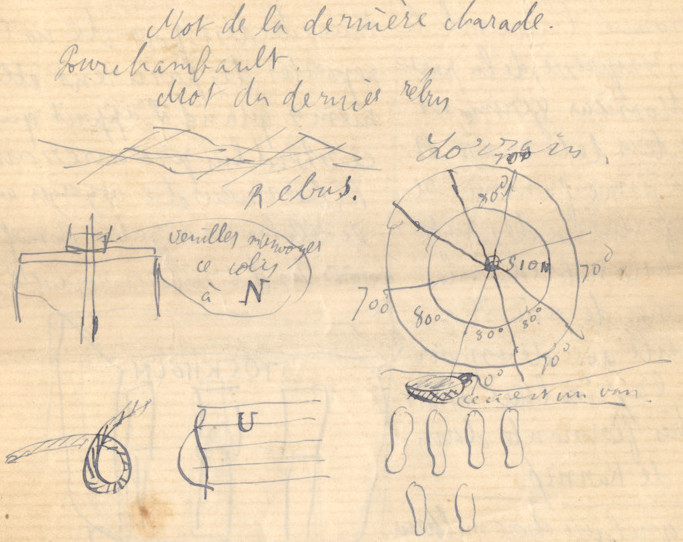 Mot de la dernière charade.
Pourchambault.
Mot du dernier rébus
Lorrain.
Rébus.
veuillez
ce colis
à N
SION
70°
80°
70°
70°
80°
80°
80°
70°
70°
ceci est un van.
U